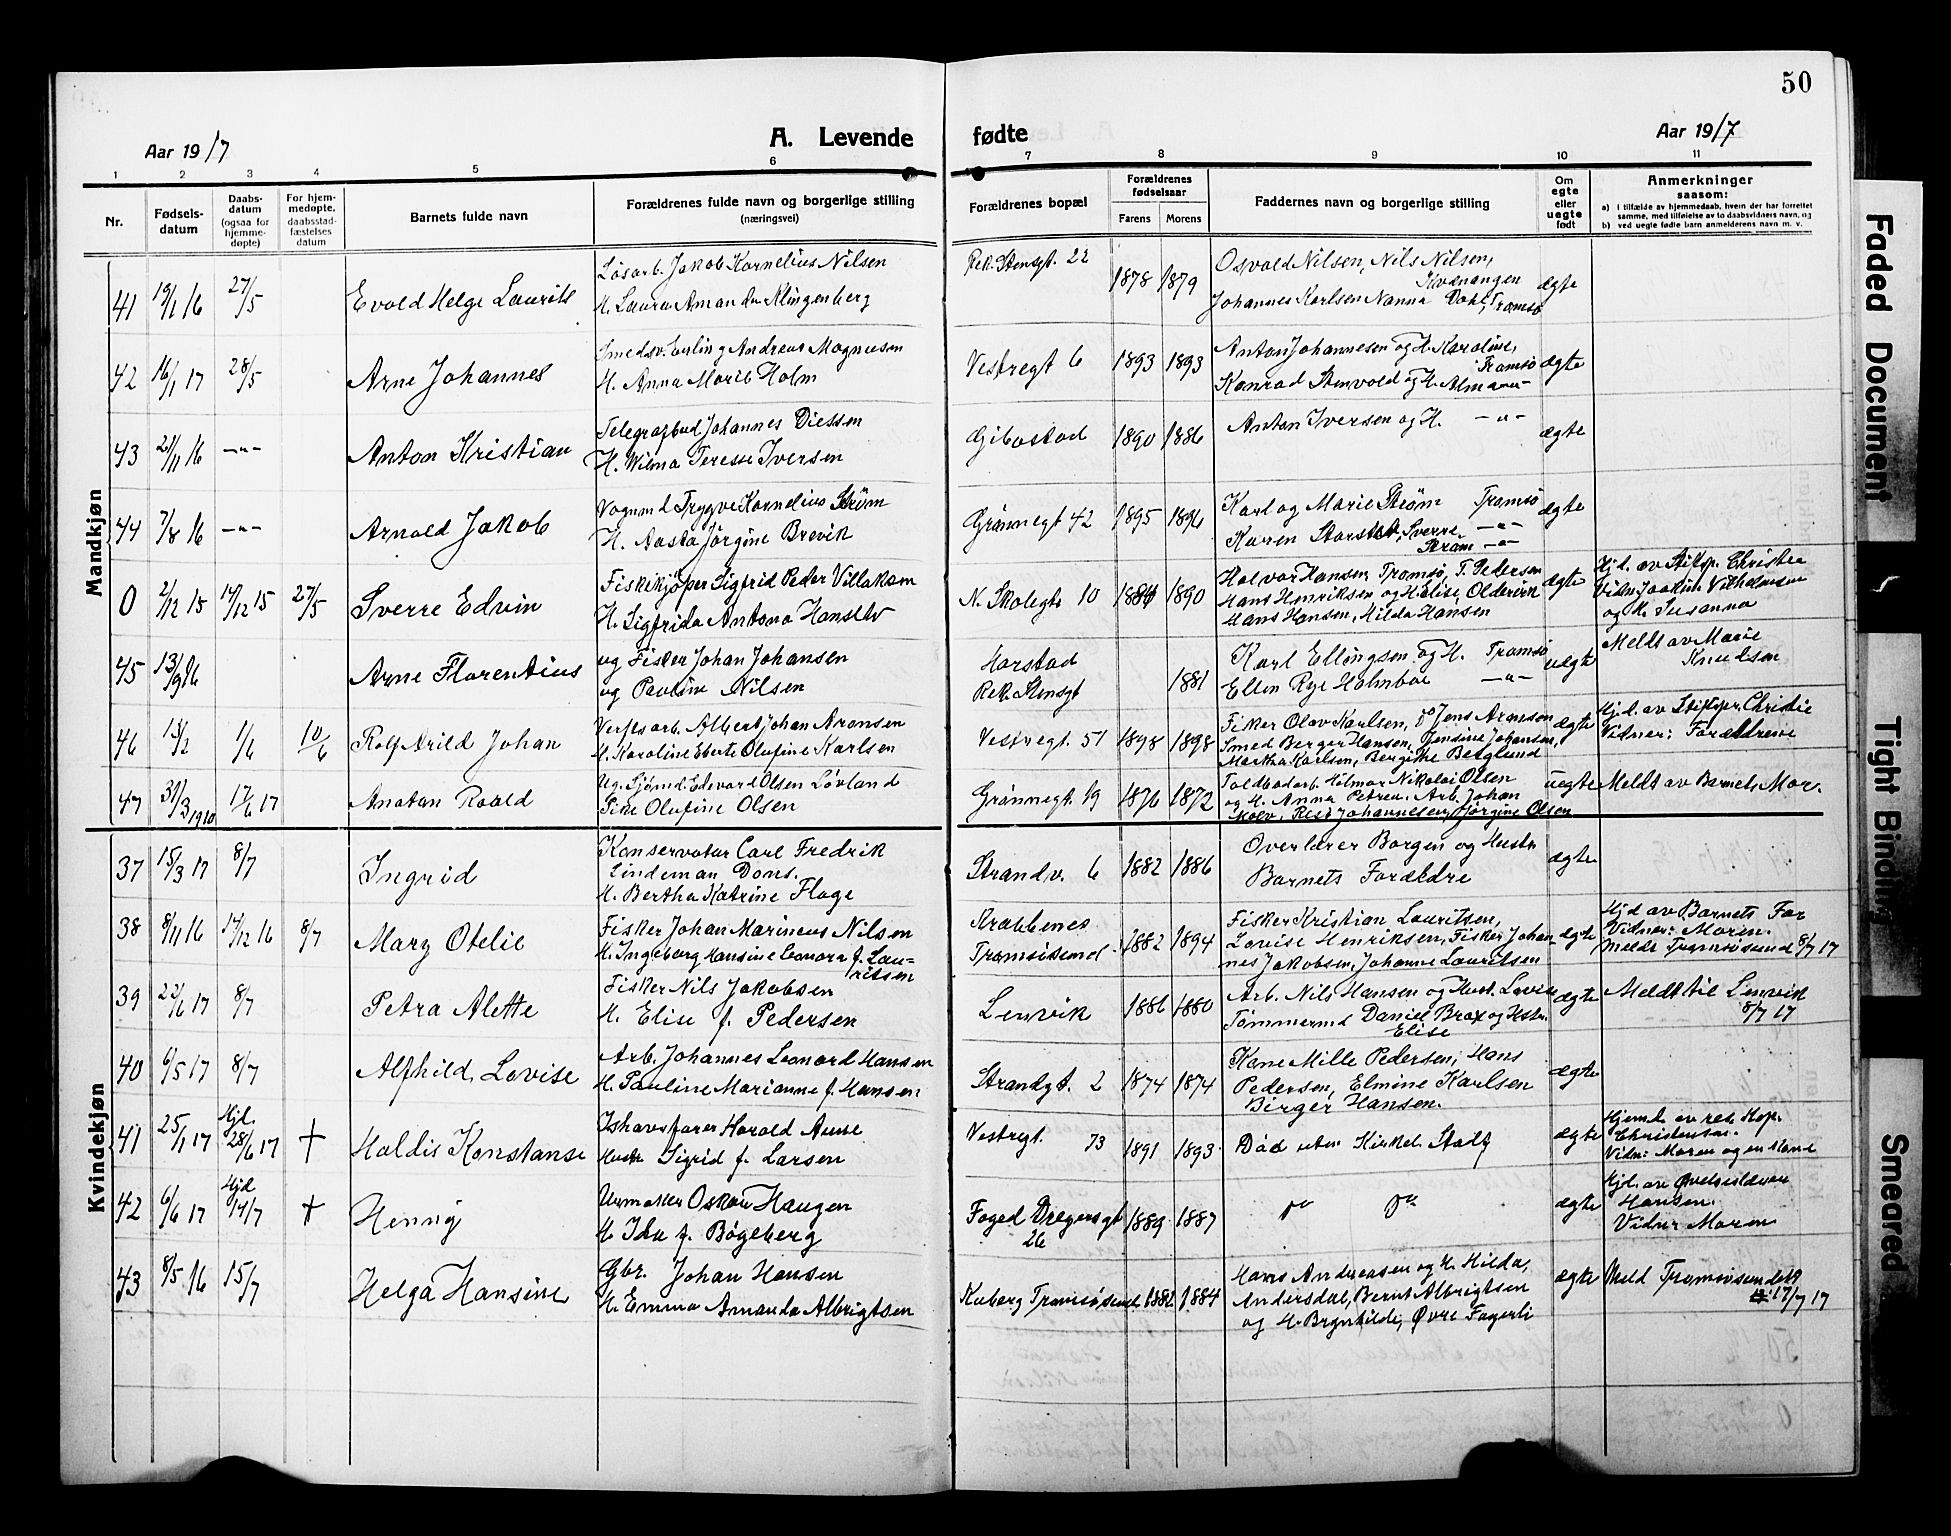 50
Aar 1917
A. Levende fødte
Aar 1917
1 2 3 4 5 6 7 8 9 10 11
Nr.
Fødsels-
datum
Daabs-
datum
(ogsaa for
hjemme-
døpte)
For hjem-
medøpte.
daabsstad-
fæstelses
datum
Barnets fulde navn
Forældrenes fulde navn og borgerlige stilling
(næringsvei)
Forældrenes bopæl
Forældrenes
fødselsaar
Farens Morens
Faddernes navn og borgerlige stilling
Om
egte
eller
uegte
født
Anmerkninger
saasom:
a) i tilfælde av hjemmedaab, hvem der har forrettet
samme, med tilføielse av to daabsvidners navn, og
b) ved uegte fødte barn anmelderens navn m. v.
Mandkjøn
41 19/1 16 27/5 Evald Helge Laurits
Løsarb. Jakob Kornelius Nilsen
H. Laura Amanda Klingenberg
Rek. Stensgt. 22 1878 1879
Osvald Nilsen, Nils Nilsen,
Kvænangen
Johannes Karlsen Nanna Dahl, Tromsø
ægte
42 16/1 17 28/5 Arne Johannes
Smedsv. Erling Andreas Magnussen
H. Anna Marie Holm
Vestregt 6 1893 1893
Anton Johannesen og H. Karoline,
Tromsø
Konrad Stenvold og H. Alma -"-
ægte
43 21/11 16 -"- Anton Kristian
Telegrafbud Johannes Diessen
H. Wilma Teresse Iversen
Gibostad 1890 1886
Anton Iversen og H. -"-
ægte
44 7/8 16 -"- Arnold Jakob
Vognmd Trygve Kornelius Strøm
H. Aasta Jørgine Brevik
Grønnegt 42 1895 1896
Karl og Marie Strøm Tromsø
Karen Storstad, Sverre -"-
Strøm -"-
ægte
0 2/12 15 14/12 15 27/5 Sverre Edvin
Fiskekjøper Sigfrid Peder Villaksen
H. Sigfrida Antona Hansen
N. Skolegt. 10 1884 1890
Halvor Hansen, Tromsø, T. Pedersen
Hans Henriksen og H. Elise, Oldervik
Hans Hansen, Hilda Hansen
ægte
Hj.d. av Stiftsp. Christie
Vidn. Joakim Vilhelmsen
og H. Susanna
45 13/9 16 Arne Florentius
ug Fisker Johan Johansen
og Pauline Nilsen
Harstad
Rek. Stensgt 1881
Karl Ellingsen og H. Tromsø
Ellen Rye Holmboe -"-
uegte
Meldt av Marie
Knudsen
46 13/2 1/6 10/6 Rolf Arild Johan
Verftsarb. Albert Johan Aronsen
H. Karoline Eberte Olufine Karlsen
Vestregt. 51 1898 1898
Fisker Olav Karlsen, do Jens Aronsen
Smed Berger Hansen, Jensine Johansen,
Martha Karlsen, Bergithe Berglund
ægte
Hj.d. av Stiftspr. Christie
Vidner: Forældrene
47 31/3 1910 17/6 17 Anatan Roald
Ug. Sjømd. Edevard Olsen Løvland
Pike Olufine Olsen
Grønnegt. 19 1876 1872
Toldbodarb. Hilmar Nikolai Olsen
og H. Anna Petrea. Arb. Johan
Johannesen, Jørgine Olsen
uegte
Meldt av Barnets Mor.
Kvindekjøn
37 15/3 17 8/7 Ingrid
Konservator Carl Fredrik
Lindeman Dons.
H. Bertha Katrine Flage
Strandv. 6 1882 1886
Overlærer Borgen og Hustr
Barnets Forældre
ægte
38 8/11 16 14/12 16 8/7 Mary Otelie
Fisker Johan Marineus Nilsen
H. Ingeborg Hansine Leonora f. Lau-
ritsen
Krabbenes
Tromsøsund 1882 1894
Fisker Kristian Lauritsen,
Lovise Henriksen, Fisker Johan-
nes Jakobsen, Johanne Lauritsen
ægte
Hjd av Barnets Far
Vidner: Moren.
Meldt Tromsøsund 8/7 17
39 22/6 17 8/7 Petra Alette
Fisker Nils Jakobsen
H. Elise f. Pedersen
Lenvik 1886 1880
Arb. Nils Hansen og Hust. Lovise
Tømmermd Daniel Brox og Hstr.
Elise
ægte
Meldt til Lenvik
8/7 17
40 6/5 17 8/7 Alfhild Lovise
Arb. Johannes Leonard Hansen
H. Pauline Marianne f. Hansen
Strandgt. 2 1874 1874
Kone Mille Pedersen, Hans
Pedersen, Elmine Karlsen
Birger Hansen.
ægte
41 25/1 17 Hjd. 28/6 17 + Haldis Konstanse
Ishavsfarer Harald Aune
Hustr Sigrid f. Larsen
Vestregt. 73 1891 1893
Død uten Kirkel. Stadf
ægte
Hjemd. av res. Kap.
Christensen.
Vidn: Moren og en Mand
42 6/6 17 Hjd 14/7 + Henny
Urmaker Oskar Haugen
H. Ida f. Bøgeberg
Foged Dregersgt
26 1889 1887
do do
ægte
Hjd. av
Hansen.
Vidner Moren
43 8/5 16 15/7 Helga Hansine
Gbr. Johan Hansen
H. Emma Amanda Albrigtsen
Kaberg Tromsøsund 1882 1884
Hans Andreasen og H. Hilda,
Andersdal, Bernt Albrigtsen
og H. Brynhilda, Øvre Fagerli
ægte
Meld Tromsøsund
17/7 17
Faded Document
Tight Binding
Smeared